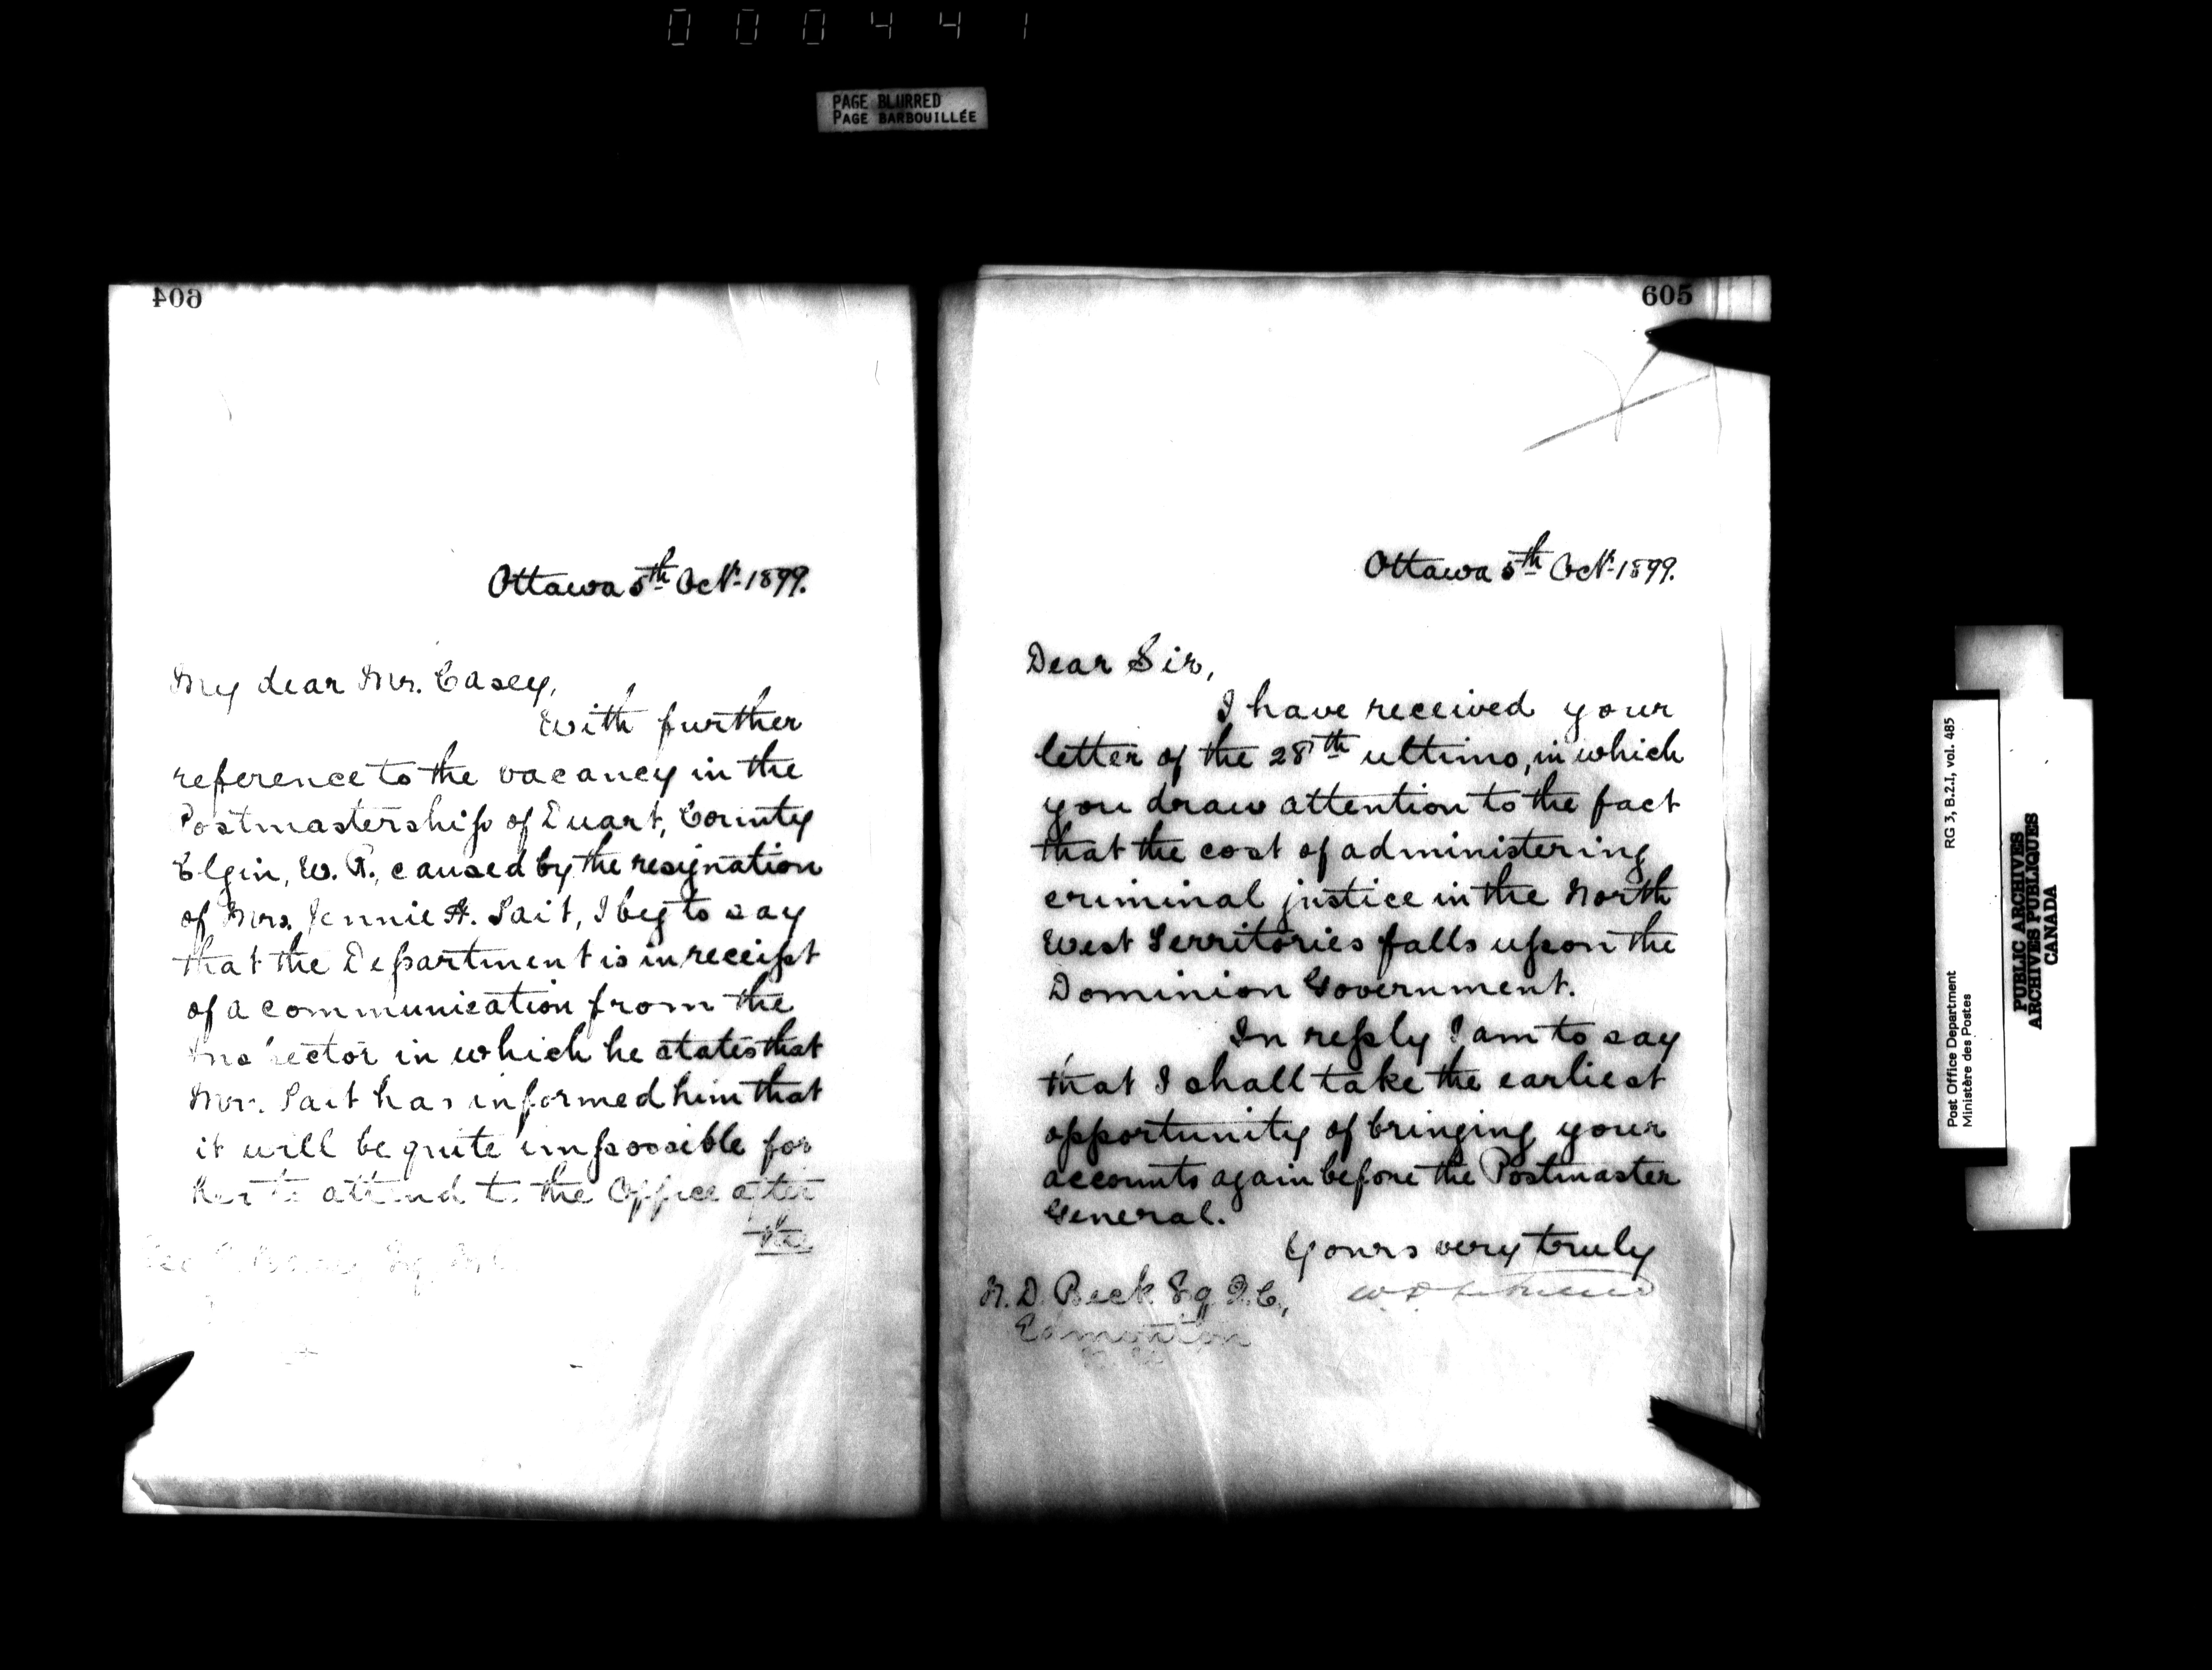 000441
PAGE BLURRED
PAGE BARBOUILLÉE
604
Ottawa 5th Oct. 1899.
My dear Mr. Casey,
With further
reference to the vacancy in the
Postmastership of Duart, County
Elgin, W. R., caused by the resignation
of Mrs. Jennie A. Tait, I beg to say
that the Department is in receipt
of a communication from the
Inspector in which he states that
Mrs. Tait has informed him that
it will be quite impossible for
her to attend to the Office after
the
605
Ottawa 5th Oct. 1899.
Dear Sir,
I have received your
letter of the 28th ultimo, in which
you draw attention to the fact
that the cost of administering
criminal justice in the North
West Territories falls upon the
Dominion Government.
In reply I am to say
that I shall take the earliest
opportunity of bringing your
accounts again before the Postmaster
General.
Yours very truly
N. D. Beck Esq Q.C.,
Edmonton
RG 3, B.2.I, vol. 485
Post Office Department
Ministère des Postes
PUBLIC ARCHIVES
ARCHIVES PUBLIQUES
CANADA